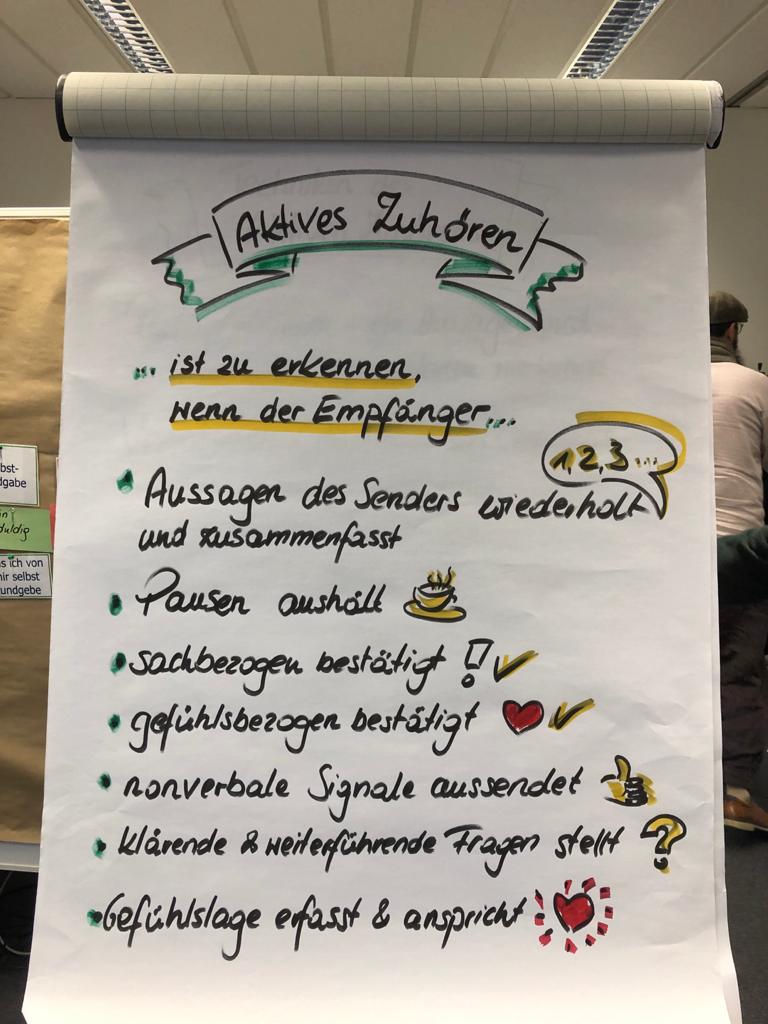 Aktives Zuhören
... ist zu erkennen,
wenn der Empfänger...
1, 2, 3 ...
Aussagen des Senders wiederholt
und zusammenfasst
Pausen aushält
sachbezogen bestätigt !
gefühlsbezogen bestätigt
nonverbale Signale aussendet
klärende & weiterführende Fragen stellt ?
Gefühlslage erfasst & anspricht
bst-
dgabe
in
duldig
s ich von
ir selbst
undgebe